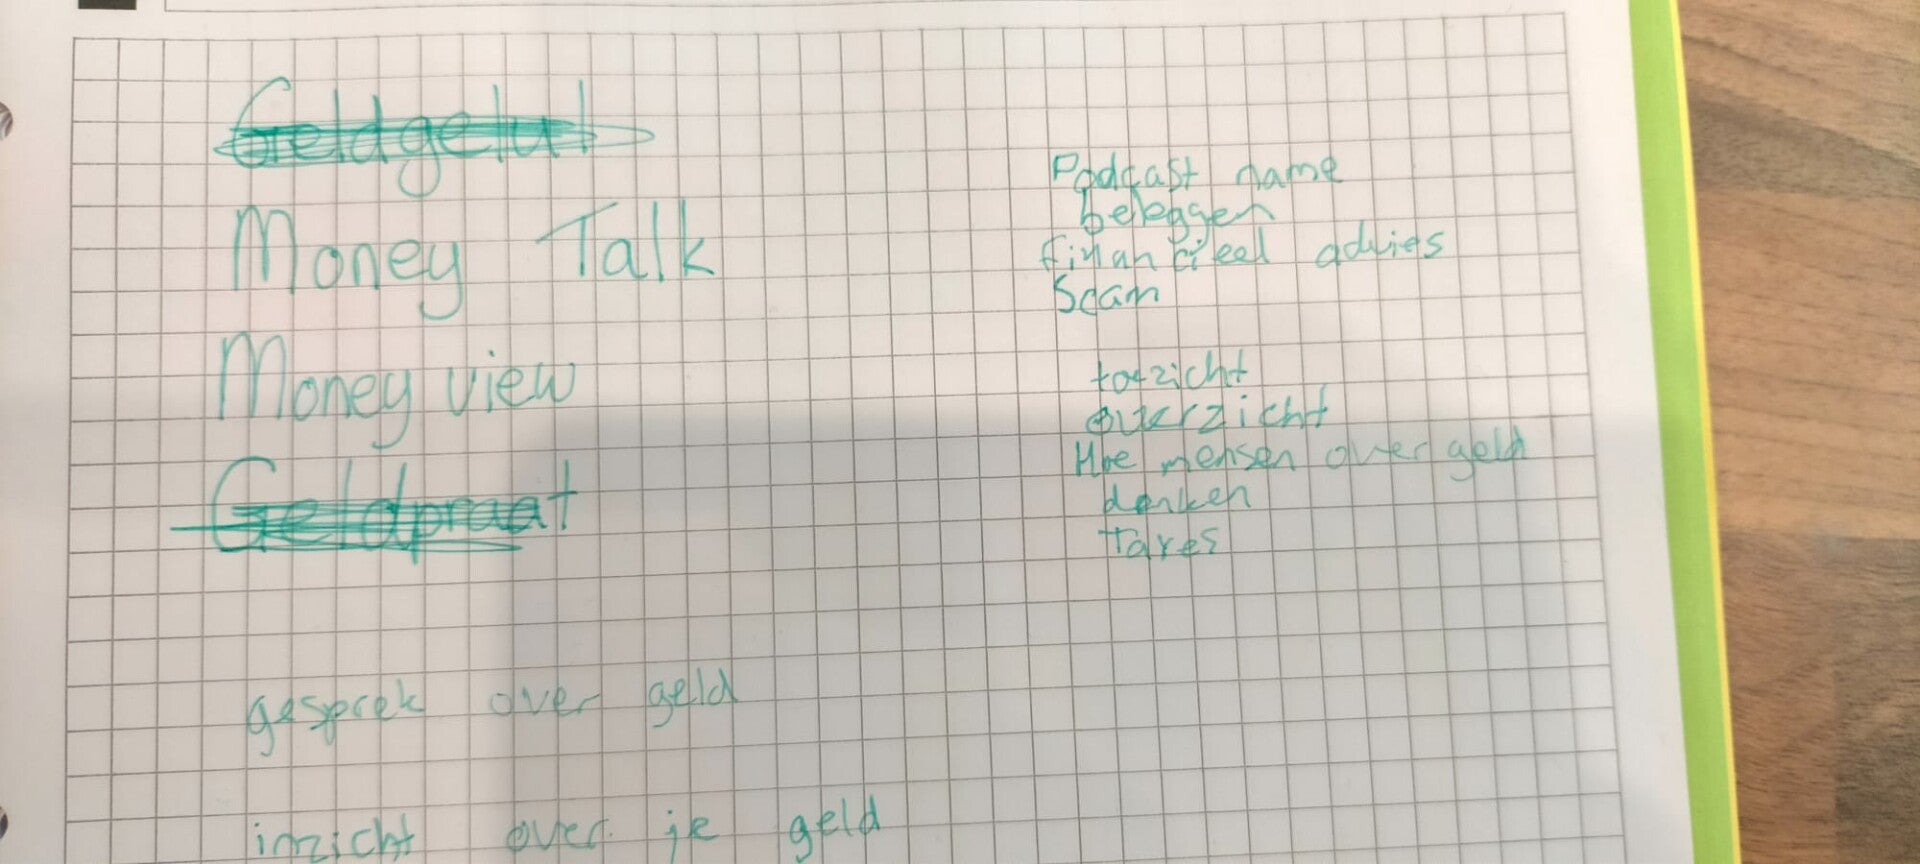 Geldgelul
Money Talk
Money view
Geldpraat
gesprek over geld
inzicht over je geld
Podcast name
beleggen
finantieel advies
Scam
toezicht
overzicht
Hoe mensen over geld
denken
Taxes